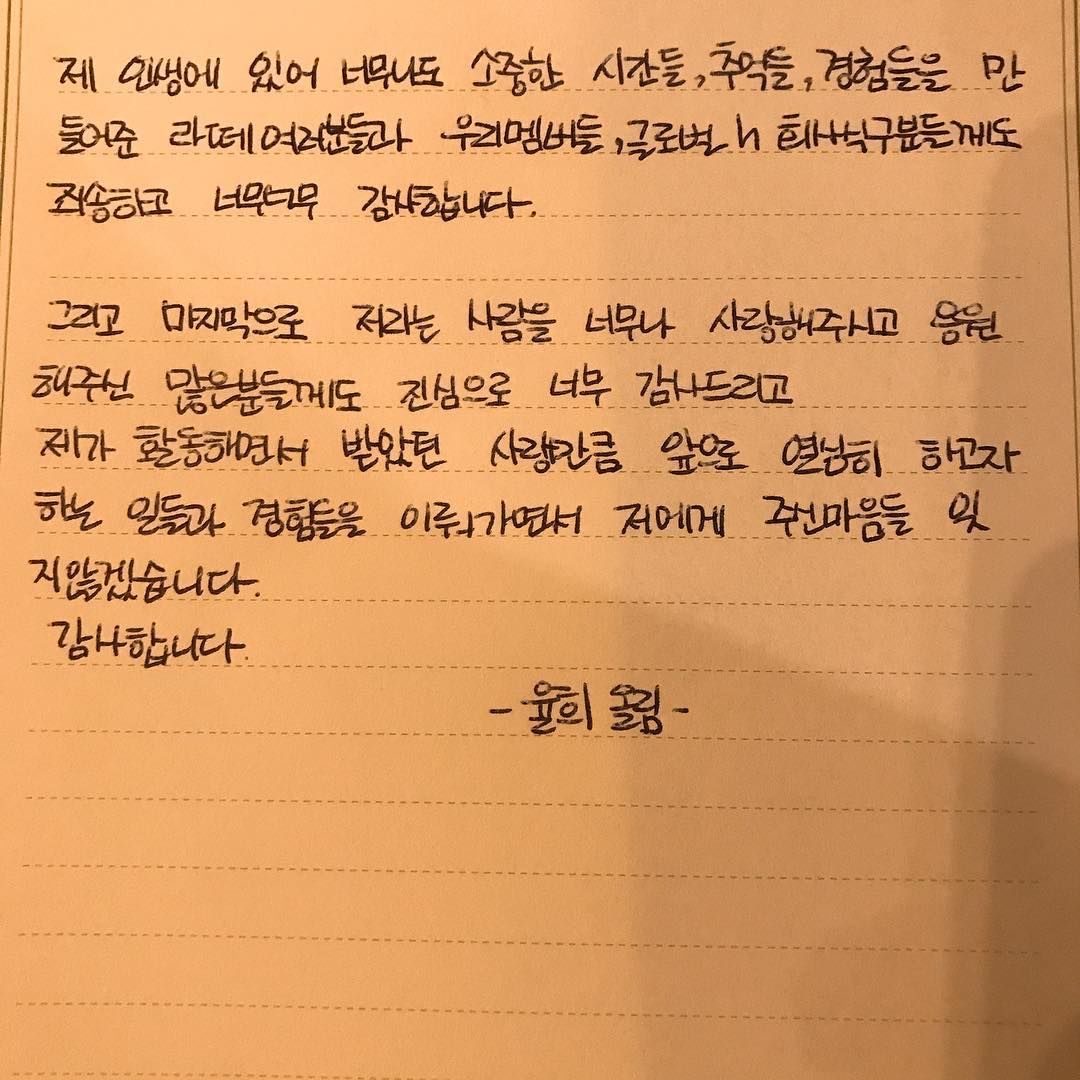 제 인생에 있어 너무나도 소중한 시간들,추억들,경험들을 만
들어준 라떼여러분들과 우리멤버들,글로벌h 회사식구분들께도
죄송하고 너무너무 감사합니다.
그리고 마지막으로 저라는 사람을 너무나 사랑해주시고 응원
해주신 많은분들께도 진심으로 너무 감사드리고
제가 활동하면서 받았던 사랑만큼 앞으로 열심히 하고자
하는 일들과 경험들을 이뤄가면서 저에게 주신마음들 잊
지않겠습니다.
감사합니다.
- 율희 올림 -